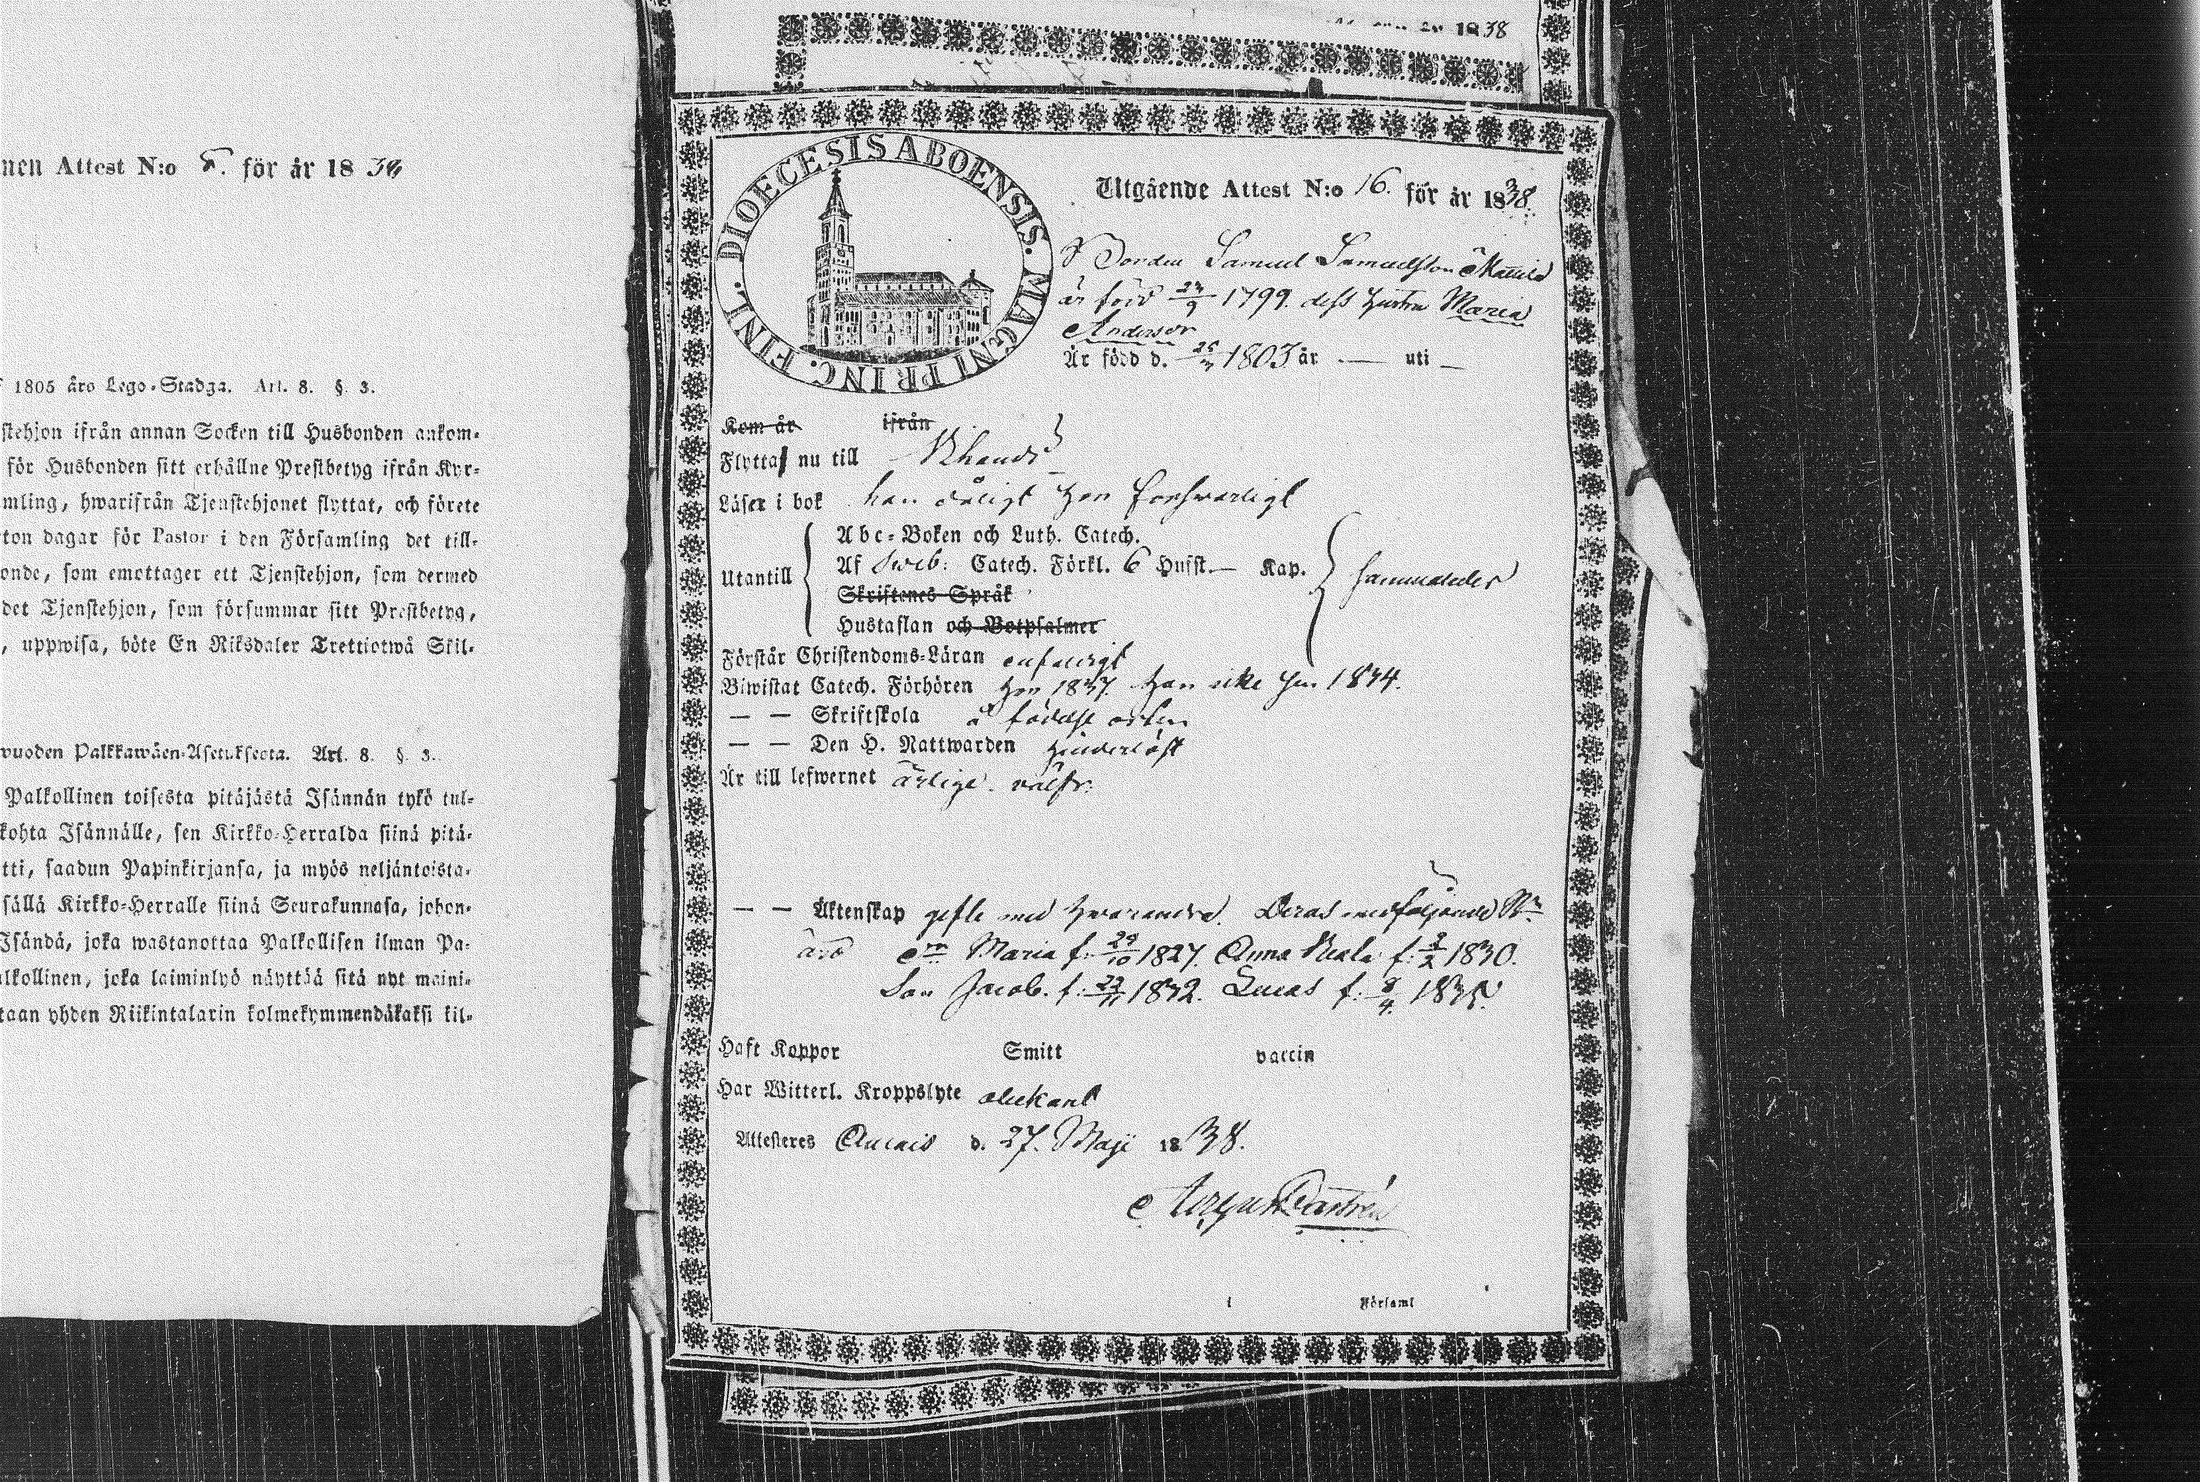 nen Attest N:o 5. för år 1838
1805 åro Lego-Stadga. Art. 8. §. 3.
stehjon ifrån annan Socken till Husbonden ankom-
för Husbonden sitt erhållne Prestbetyg ifrån Kyr-
mling, hwarifrån Tjenstehjonet flyttat, och förete
ton dagar för Pastor i den Församling det till-
onde, som emottager ett Tjenstehjon, som dermed
det Tjenstehjon, som försummar sitt Prestbetyg,
, uppwisa, böte En Riksdaler Trettiotwå Skil-
wuoden Palkkawäen-Asetuksesta. Art. 8. §. 3.
Palkollinen toisesta pitäjästä Isännän tykö tul-
kohta Isännälle, sen Kirkko-Herralda siinä pitä-
tti, saadun Papinkirjansa, ja myös neljäntoista-
sällä Kirkko-Herralle siinä Seurakunnasa, johon-
Isändä, joka wastanottaa Palkollisen ilman Pa-
lkollinen, joka laiminlyö näyttää sitä nyt maini-
taan yhden Riikintalarin kolmekymmendäkaksi kil-
1838
DIOECESIS ABOENSIS. MAGNI PRINC. FINL.
Utgående Attest N:o 16. för år 1838.
Bonden Samuel Samuelsson Mattila
är född 9 1799. dess hustru Maria
Andersdr
Är född d. 1803 år — uti —
Kom år ifrån
Flytta nu till
Läser i bok han dåligt hon forswarligt
Abc-Boken och Luth. Catech.
Utantill
Af Sveb: Catech. Förkl. 6 Hufst. — Kap.
Skriftenes Språk
Hustaflan och Botpsalmer
Förstår Christendoms-Läran enfaldigt
Biwistat Catech. Förhören hon 1837. han icke sen 1834.
— — Skriftskola å födelse orten
— — Den H. Nattwarden hinderlöst
Är till lefwernet ärlige. välfr.
— — Äktenskap gifte med hvarandra. Deras medföljande
äro Maria f. 29/10 1827. Anna f. 2 1830.
Son Jacob. f. 22/11 1832. Lucas f. 8/4 1835.
Haft Koppor Smitt vaccin
Har Witterl. Kroppslyte obekant
Attesteres d. 27. Maji 1838.
August Castrén
i Församl